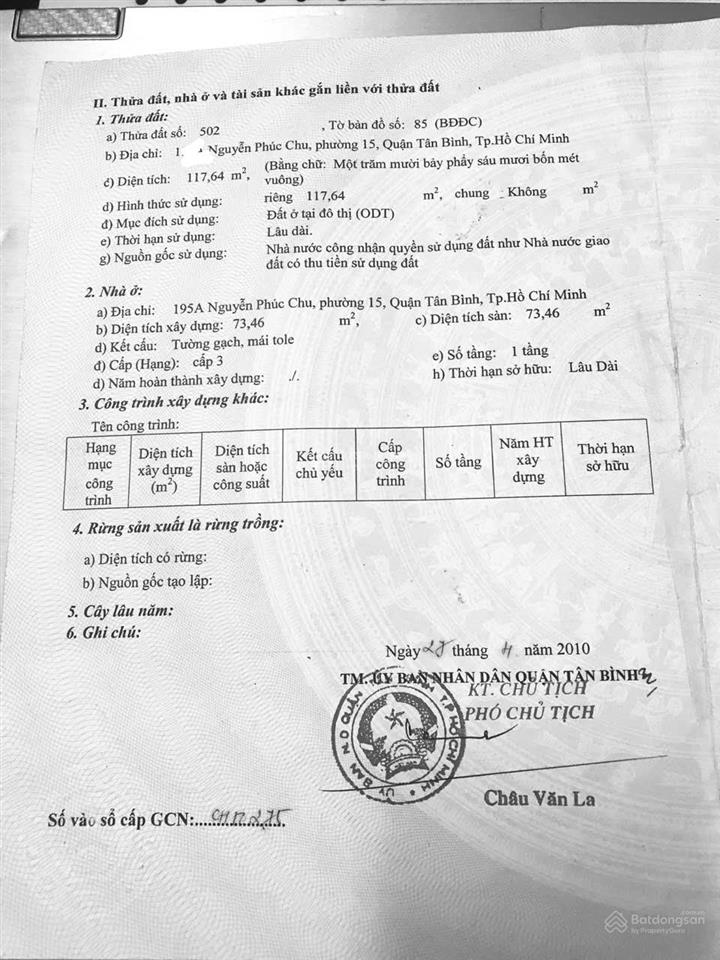 II. Thửa đất, nhà ở và tài sản khác gắn liền với thửa đất
1. Thửa đất:
a) Thửa đất số: 502 , Tờ bản đồ số: 85 (BĐĐC)
b) Địa chỉ: 1 Nguyễn Phúc Chu, phường 15, Quận Tân Bình, Tp.Hồ Chí Minh
c) Diện tích: 117,64 m², (Bằng chữ: Một trăm mười bảy phẩy sáu mươi bốn mét vuông)
d) Hình thức sử dụng: riêng 117,64 m², chung Không m²
đ) Mục đích sử dụng: Đất ở tại đô thị (ODT)
e) Thời hạn sử dụng: Lâu dài.
g) Nguồn gốc sử dụng: Nhà nước công nhận quyền sử dụng đất như Nhà nước giao
đất có thu tiền sử dụng đất
2. Nhà ở:
a) Địa chỉ: 195A Nguyễn Phúc Chu, phường 15, Quận Tân Bình, Tp.Hồ Chí Minh
b) Diện tích xây dựng: 73,46 m², c) Diện tích sàn: 73,46 m²
d) Kết cấu: Tường gạch, mái tole
đ) Cấp (Hạng): cấp 3 e) Số tầng: 1 tầng
d) Năm hoàn thành xây dựng: ./. h) Thời hạn sở hữu: Lâu Dài
3. Công trình xây dựng khác:
Tên công trình:
Hạng mục công trình Diện tích xây dựng (m²) Diện tích sàn hoặc công suất Kết cấu chủ yếu Cấp công trình Số tầng Năm HT xây dựng Thời hạn sở hữu
4. Rừng sản xuất là rừng trồng:
a) Diện tích có rừng:
b) Nguồn gốc tạo lập:
5. Cây lâu năm:
6. Ghi chú:
Ngày tháng 4 năm 2010
TM. ỦY BAN NHÂN DÂN QUẬN TÂN BÌNH
KT. CHỦ TỊCH
PHÓ CHỦ TỊCH
Châu Văn La
Số vào sổ cấp GCN:
Batdongsan
by PropertyGuru